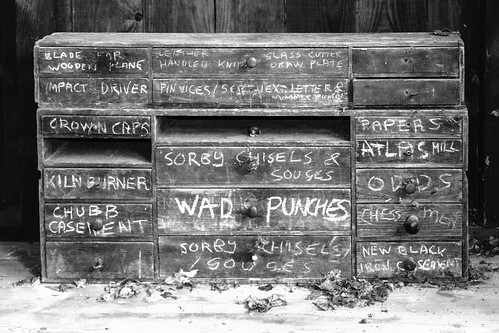 BLADE FOR
WOODEN PLANE
LEATHER
HANDLED KNIFE
GLASS CUTTER
DRAW PLATE
IMPACT DRIVER
PIN VICES/
LETTER &
NUMBER
CROWN CAPS
PAPERS
SORBY CHISELS &
GOUGES
ATLAS MILL
KILN BURNER
ODDS
WAD PUNCHES
CHUBB
CASEMENT
CHESS MEN
SORBY CHISELS/
GOUGES
NEW BLACK
IRON CASEMENT